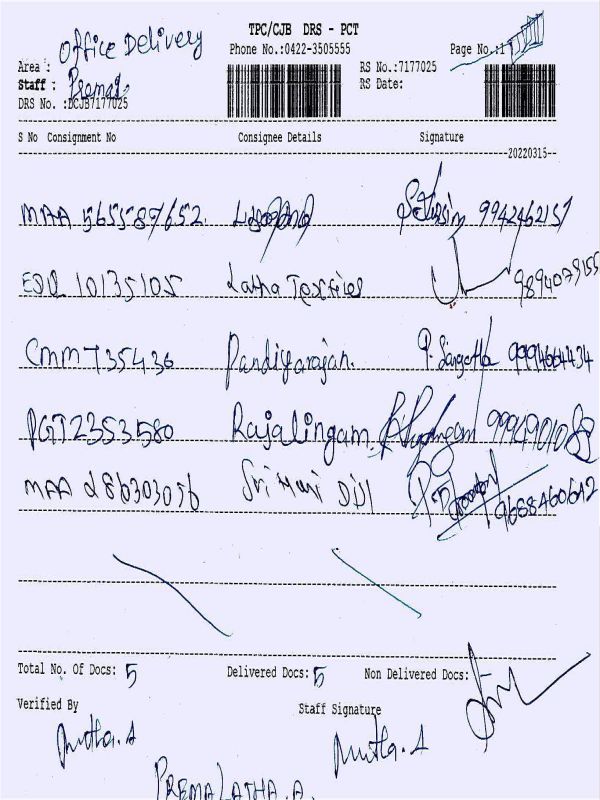 TPC/CJB DRS - PCT
Office Delivery
Phone No.:0422-3505555
Page No.:1
Area :
RS No.:7177025
Staff :
RS Date:
DRS No. :DCJB7177025
S No Consignment No Consignee Details Signature
20220315
MAA 565587652 9942462157
EDQ 10135105 Latha Textiles 9894079155
CMMT35436 Pandiyarajan. P. Sangeetha 9994664434
PGT2353580 Rajalingam. 9994901088
MAA 286303056 Sri Hari 9688460642
Total No. Of Docs: 5 Delivered Docs: 5 Non Delivered Docs:
Verified By Staff Signature
PREMALATHA.A.